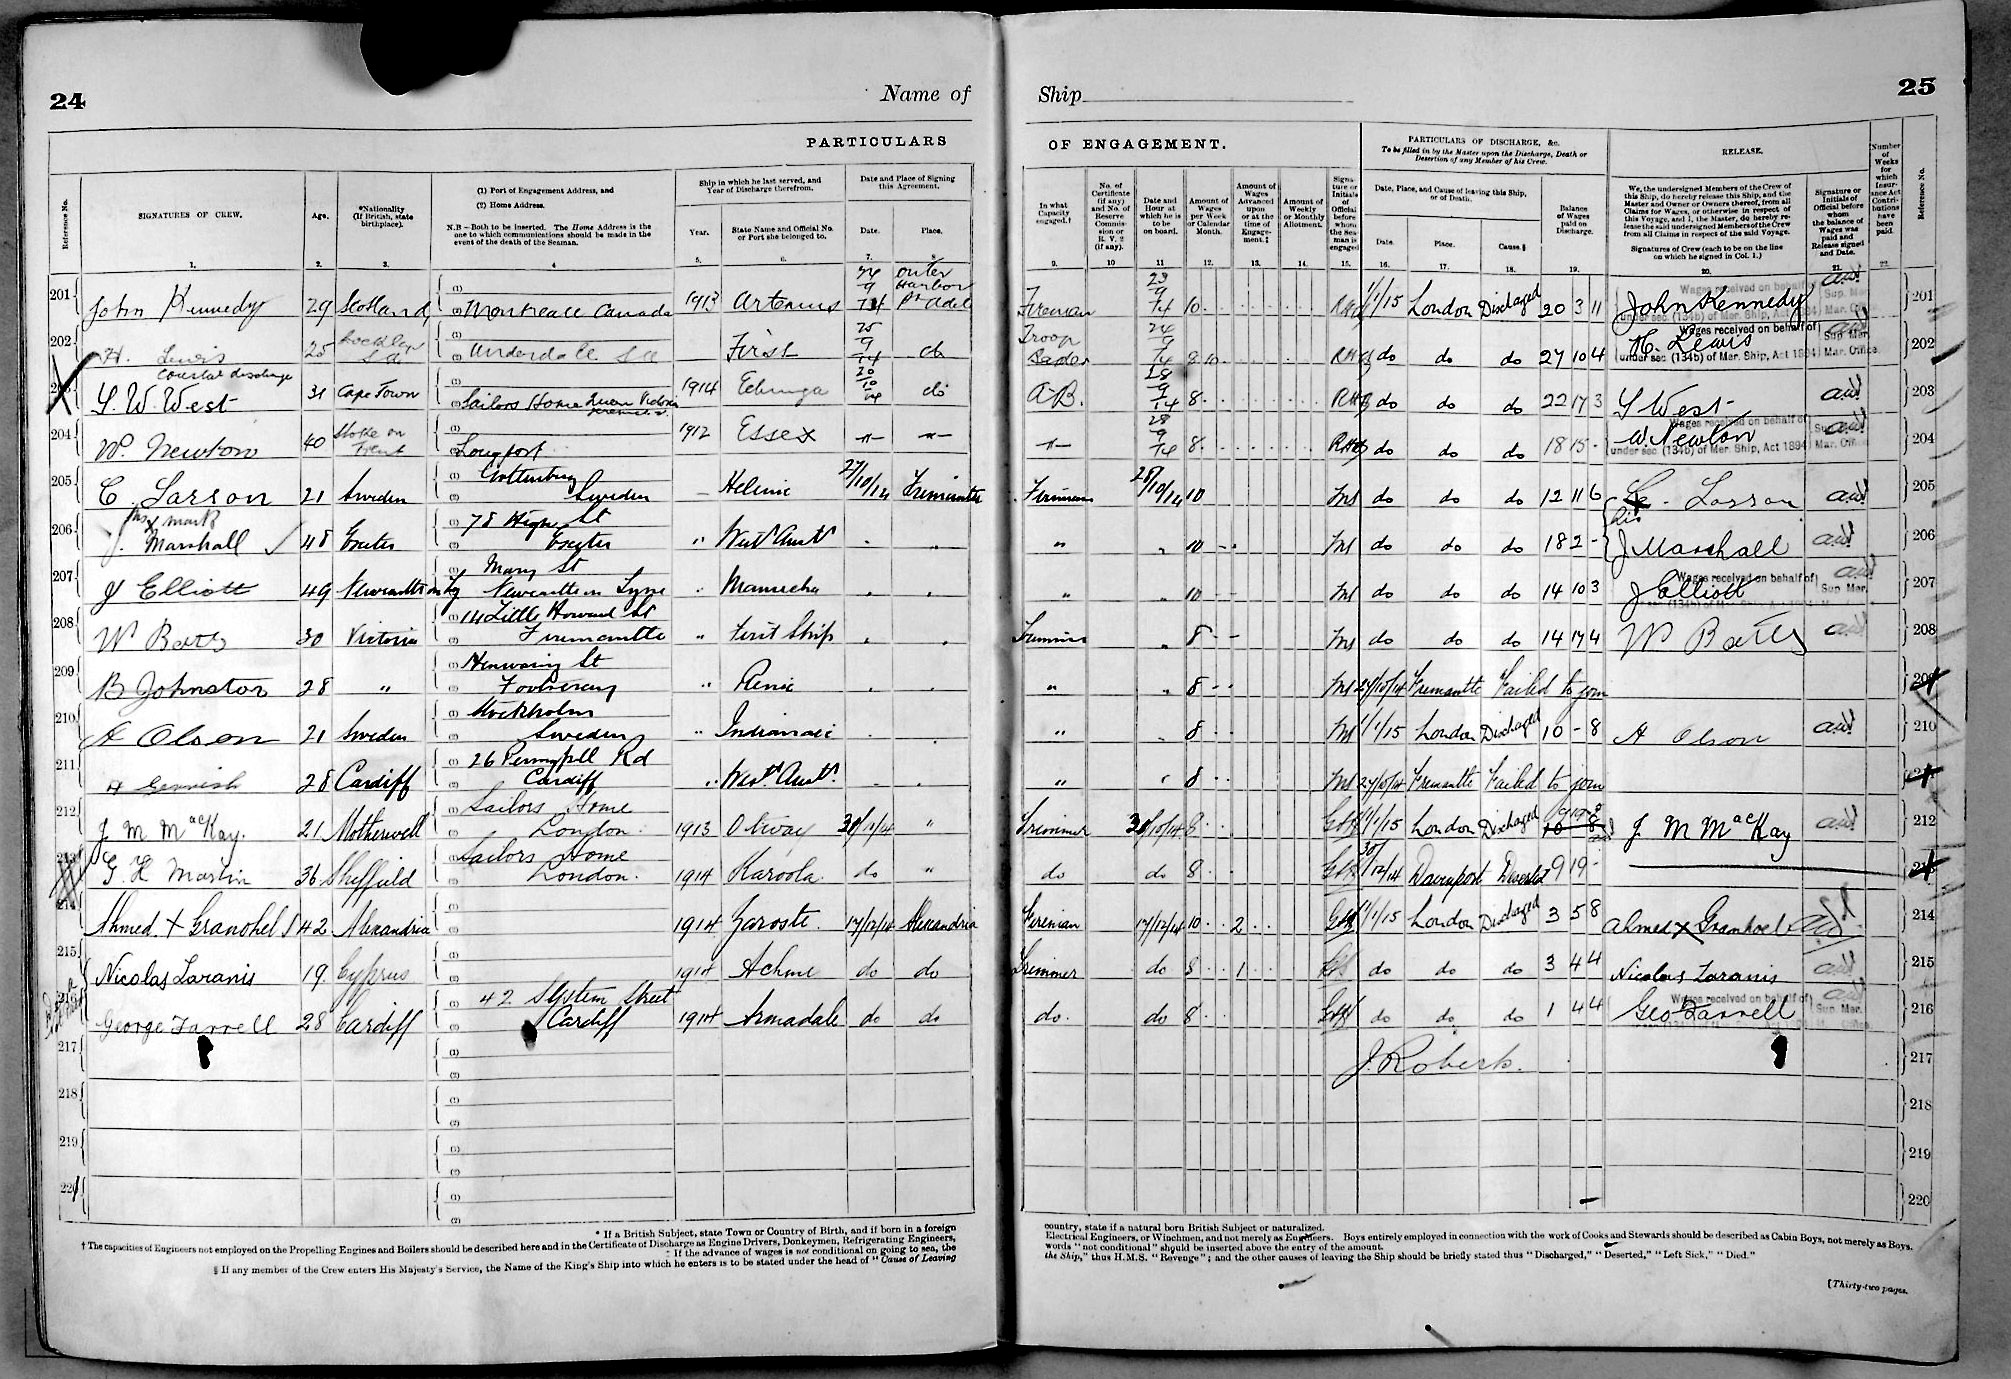 24
Name of
Ship
25
PARTICULARS
OF ENGAGEMENT.
PARTICULARS OF DISCHARGE, &c.
To be filled in by the Master upon the Discharge, Death or
Desertion of any Member of his Crew.
RELEASE.
Number of Weeks for which Insurance Act Contributions have been paid
Reference No.
SIGNATURES OF CREW.
Age.
*Nationality (If British, state birthplace).
(1) Port of Engagement Address, and
(2) Home Address.
N.B – Both to be inserted. The Home Address is the
one to which communications should be made in the
event of the death of the Seaman.
Ship in which he last served, and
Year of Discharge therefrom.
Year.
State Name and Official No.
or Port she belonged to.
Date and Place of Signing
this Agreement.
Date.
Place.
In what Capacity engaged.†
No. of Certificate (if any) and No. of Reserve Commission or R. V. 2 (if any).
Date and Hour at which he is to be on board.
Amount of Wages per Week or Calendar Month.
Amount of Wages Advanced upon or at the time of Engagement.‡
Amount of Weekly or Monthly Allotment.
Signature or Initials of Official before whom the Seaman is engaged
Date, Place, and Cause of leaving this Ship,
or of Death.
Date.
Place.
Cause.§
Balance of Wages paid on Discharge.
We, the undersigned Members of the Crew of
this Ship, do hereby release this Ship, and the
Master and Owner or Owners thereof, from all
Claims for Wages, or otherwise in respect of
this Voyage, and I, the Master, do hereby release
the said undersigned Members of the Crew
from all Claims in respect of the said Voyage.
Signatures of Crew (each to be on the line
on which he signed in Col. 1.)
Signature or Initials of Official before whom the balance of Wages was paid and Release signed and Date.
Reference No.
1. 2. 3. 4 5. 6. 7. 8 9. 10 11 12. 13. 14. 15. 16. 17. 18. 19. 20. 21. 22.
201 John Kennedy 29 Scotland Montreall Canada 1913 Artemus Outer Harbor Pt Adel Fireman 10 1/1/15 London Discharged 20 3 11 John Kennedy 201
202 H. Lewis 25 Underdale SA First do Troop 8 10 do do do 27 10 4 H. Lewis 202
Wages received on behalf of
under sec. (134b) of Mer. Ship, Act 1894
Coastal discharge
S. W. West 31 Cape Town Sailors Home 1914 Echunga do A.B. 8 do do do 22 17 3 S West 203
204 W. Newton 40 Stoke on Trent Longport 1912 Essex 8 do do do 18 15 - W. Newton 204
205 C. Larson 21 Sweden Gottenburg Sweden Helenic 27/10/14 Fremantle Fireman 28/10/14 10 do do do 12 11 6 C. Larson 205
206 his X mark J. Marshall 48 Exeter 78 High St Exeter " West Aust " 10 do do do 18 2 - his J Marshall 206
207 J Elliott 49 Mary St Newcastle on Tyne 10 do do do 14 10 3 J Elliott 207
208 W Batts 30 Victoria 14 Little Howard St Fremantle " First Ship Trimmer 8 do do do 14 17 4 W Batts 208
209 B Johnston 28 " Footscray " " 8 Fremantle Failed to join
210 A Olson 21 Sweden Stockholm Sweden " " 8 1/1/15 London Discharged 10 - 8 A Olson 210
211 28 Cardiff Cardiff " West Aust " 8 Fremantle Failed to join
212 J. M. MacKay. 21 Motherwell Sailors Home London. 1913 " Trimmer 8 1/1/15 London Discharged J M MacKay 212
G. H Martin 36 Sheffield Sailors Home London. 1914 Karoola do " do do 8 30/12/14 Davenport Deserted 9 19 -
Ahmed X Granohel 42 Alexandria 1914 Zaroste 17/12/14 Alexandria Fireman 17/12/14 10 2 1/1/15 London Discharged 3 5 8 Ahmed X Granhoel 214
215 Nicolas Laranis 19. Cyprus 1914 Achme do do Trimmer do 8 1 do do do 3 4 4 Nicolas Laranis 215
216 George Farrell 28 Cardiff 42 System Street Cardiff 1914 Armadale do do do. do 8 do do do 1 4 4 Geo Farrell 216
217 J. Roberts. 217
218 218
219 219
220 220
* If a British Subject, state Town or Country of Birth, and if born in a foreign
country, state if a natural born British Subject or naturalized.
† The capacities of Engineers not employed on the Propelling Engines and Boilers should be described here and in the Certificate of Discharge as Engine Drivers, Donkeymen, Refrigerating Engineers,
Electrical Engineers, or Winchmen, and not merely as Engineers. Boys entirely employed in connection with the work of Cooks and Stewards should be described as Cabin Boys, not merely as Boys.
‡ If the advance of wages is not conditional on going to sea, the
words "not conditional" should be inserted above the entry of the amount.
§ If any member of the Crew enters His Majesty's Service, the Name of the King's Ship into which he enters is to be stated under the head of "Cause of Leaving
the Ship," thus H.M.S. "Revenge"; and the other causes of leaving the Ship should be briefly stated thus "Discharged," "Deserted," "Left Sick," "Died."
[Thirty-two pages.